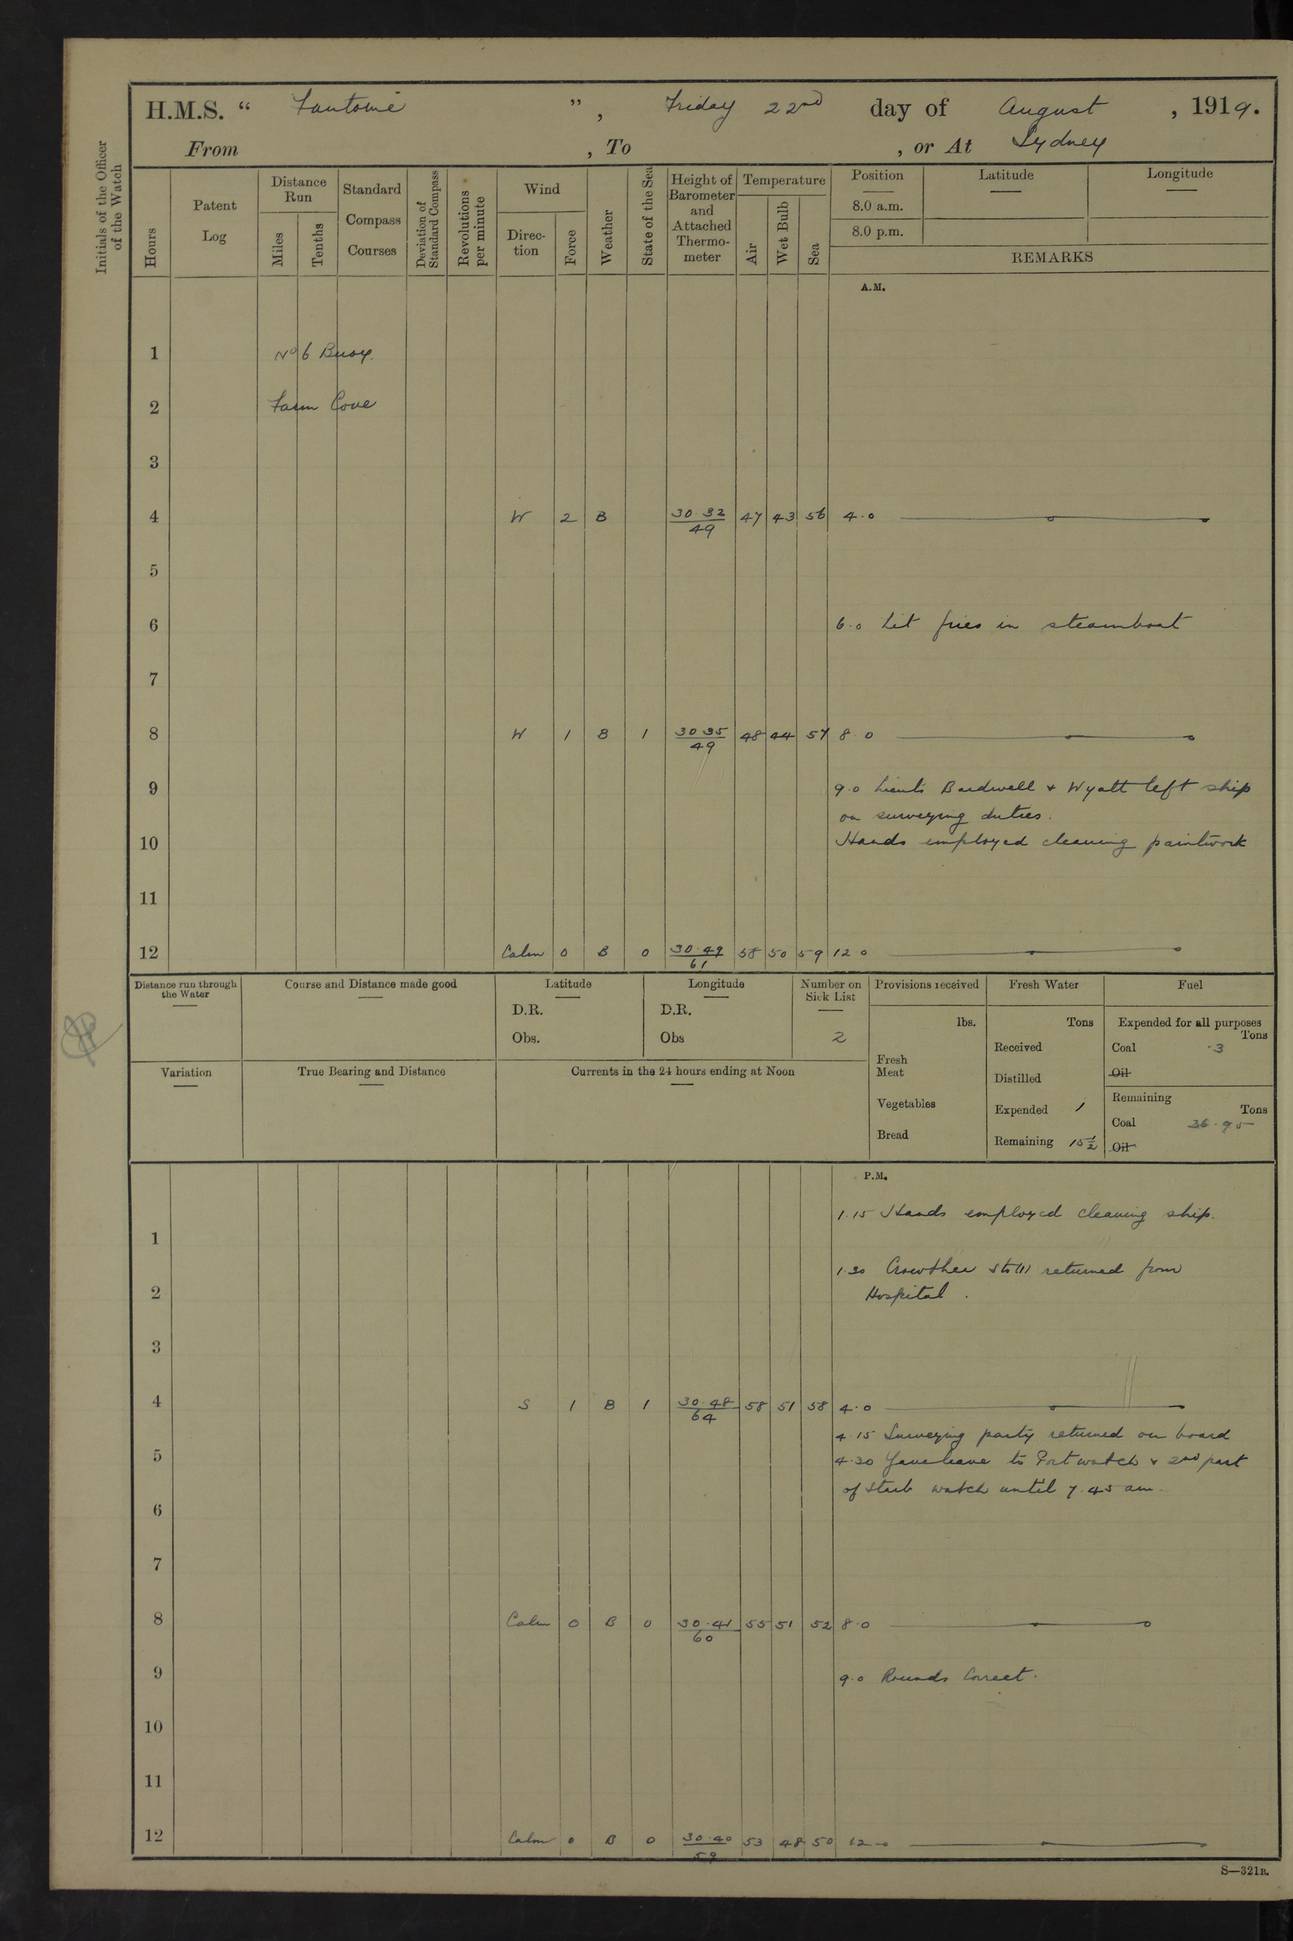 H.M.S. “ Fantome ” , Friday 22nd day of August , 1919.
From , To , or At Sydney
Initials of the Officer of the Watch
Hours
Patent Log
Distance Run
Miles
Tenths
Standard Compass Courses
Deviation of Standard Compass
Revolutions per minute
Wind
Direc-tion
Force
Weather
State of the Sea
Height of Barometer and Attached Thermo-meter
Temperature
Air
Wet Bulb
Sea
Position
8.0 a.m.
8.0 p.m.
Latitude
Longitude
REMARKS
A.M.
1 No 6 Buoy.
2 Farm Cove
3
4 W 2 B 30.32 / 49 47 43 56 4.0
5
6 6.0 Lit fires in steamboat
7
8 W 1 B 1 30 35 / 49 48 44 57 8.0
9 9.0 Lieuts Bardwell + Wyatt left ship
on surveying duties.
10 Hands employed cleaning paintwork
11
12 Calm 0 B 0 30.49 / 61 58 50 59 12 0
Distance run through the Water
Course and Distance made good
Latitude
D.R.
Obs.
Longitude
D.R.
Obs
Number on Sick List
2
Provisions received
lbs.
Fresh Meat
Vegetables
Bread
Fresh Water
Tons
Received
Distilled
Expended 1
Remaining 15 1/2
Fuel
Expended for all purposes
Tons
Coal .3
Oil
Remaining
Tons
Coal 36.95
Oil
Variation
True Bearing and Distance
Currents in the 24 hours ending at Noon
P.M.
1.15 Hands employed cleaning ship.
1
1.30 Crowther Sto III returned from
2 Hospital.
3
4 S 1 B 1 30.48 / 64 58 51 58 4.0
4.15 Surveying party returned on board
5 4.30 Gave leave to Port watch + 2nd part
of Starb watch until 7.45 am.
6
7
8 Calm 0 B 0 30.41 / 60 55 51 52 8.0
9 9.0 Rounds Correct.
10
11
12 Calm 0 B 0 30.40 / 59 53 48 50 12 0
S—321B.